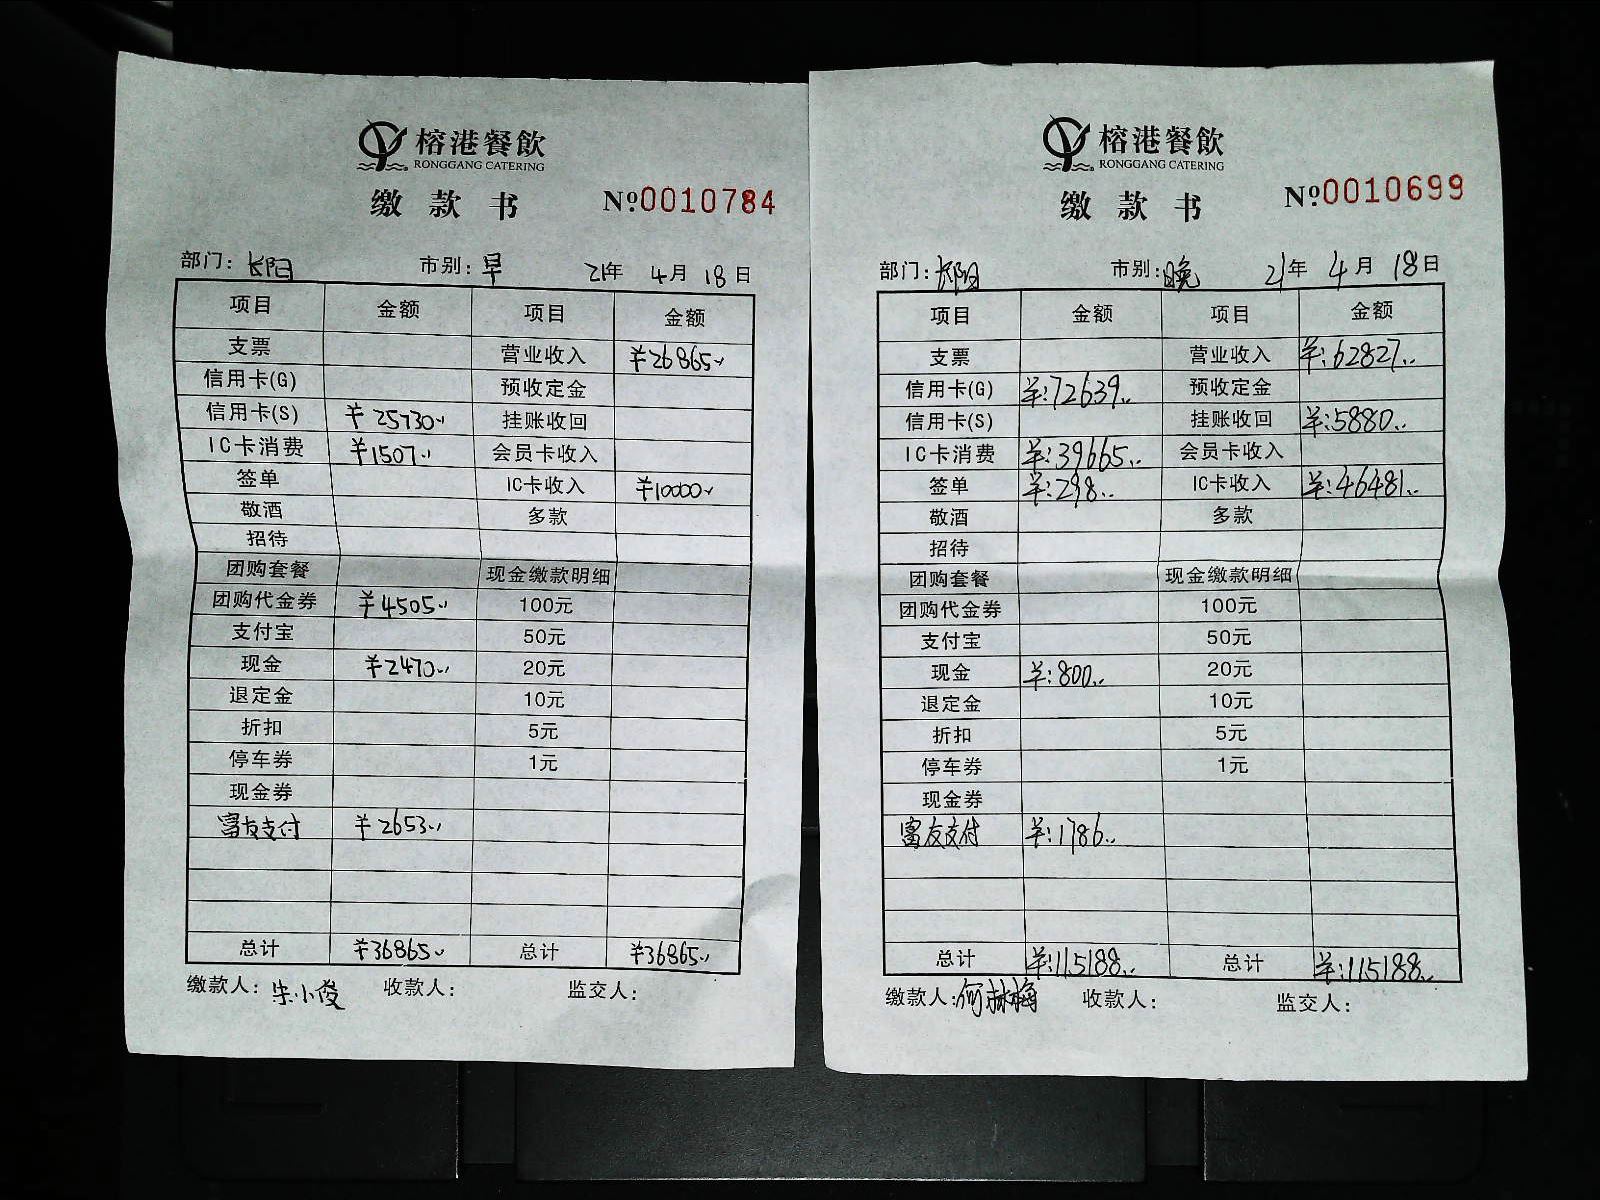 榕港餐飲
RONGGANG CATERING
缴款书 №0010784
部门：长阳 市别：早 21年 4月 18日
项目 金额 项目 金额
支票 营业收入 ¥26865
信用卡(G) 预收定金
信用卡(S) ¥25730 挂账收回
IC卡消费 ¥1507 会员卡收入
签单 IC卡收入 ¥10000
敬酒 多款
招待
团购套餐 现金缴款明细
团购代金券 ¥4505 100元
支付宝 50元
现金 ¥2470 20元
退定金 10元
折扣 5元
停车券 1元
现金券
富友支付 ¥2653
总计 ¥36865 总计 ¥36865
缴款人：朱小俊 收款人： 监交人：
榕港餐飲
RONGGANG CATERING
缴款书 №0010699
部门：长阳 市别：晚 21年 4月 18日
项目 金额 项目 金额
支票 营业收入 ¥:62827..
信用卡(G) ¥:72639.. 预收定金
信用卡(S) 挂账收回 ¥:5880..
IC卡消费 ¥:39665.. 会员卡收入
签单 ¥:298.. IC卡收入 ¥:46481..
敬酒 多款
招待
团购套餐 现金缴款明细
团购代金券 100元
支付宝 50元
现金 ¥:800.. 20元
退定金 10元
折扣 5元
停车券 1元
现金券
富友支付 ¥:1786..
总计 ¥:115188.. 总计 ¥:115188..
缴款人：何林梅 收款人： 监交人：